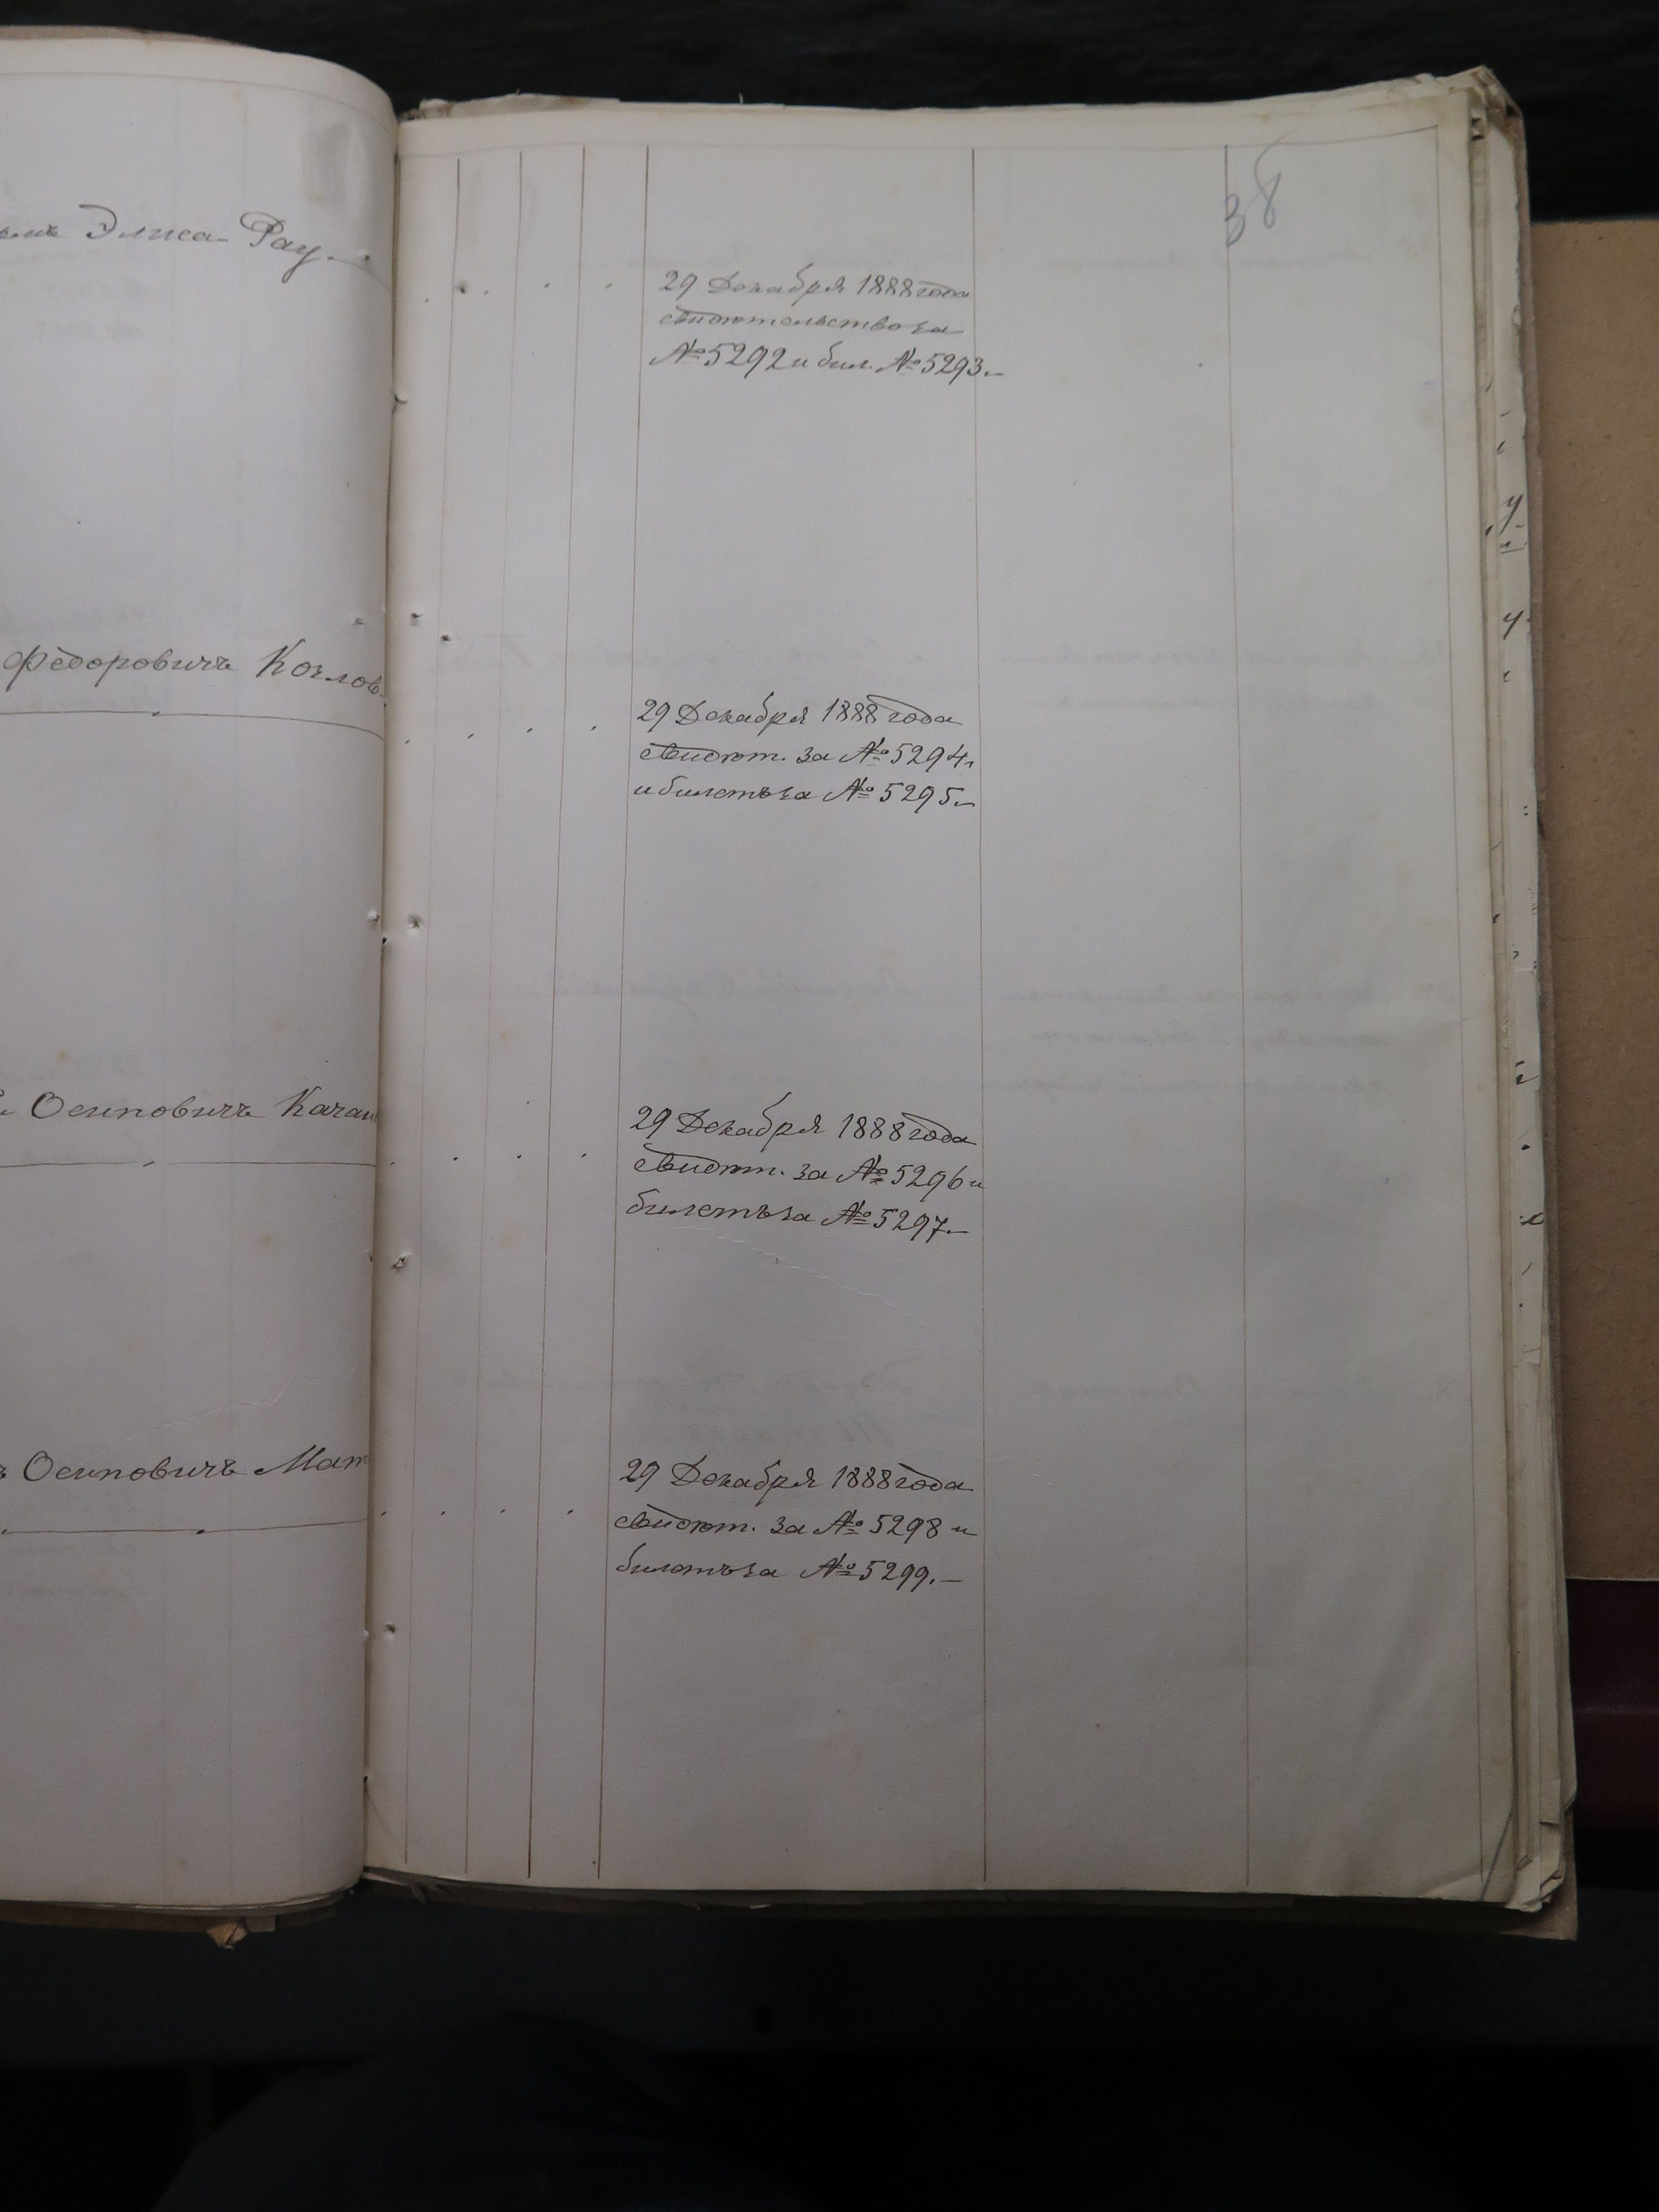 38
Элиса-Рау.
29 Декабря 1888 года
свидѣтельство за
№ 5292 и бил. № 5293.—
Федоровичъ Козлов
29 Декабря 1888 года
свидѣт. за № 5294
и билетъ за № 5295.—
Осиповичъ Качан
29 Декабря 1888 года
свидѣт. за № 5296 и
билетъ за № 5297.—
Осиповичъ Мат
29 Декабря 1888 года
свидѣт. за № 5298 и
билетъ за № 5299.—